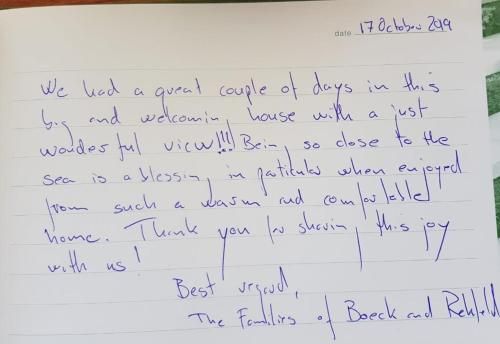 date 17 October 2019
We had a great couple of days in this
big and welcoming house with a just
wonderful view!!! Being so close to the
sea is a blessing, in particular when enjoyed
from such a warm and comfortable
home. Thank you for sharing this joy
with us!
Best regards,
The Families of Boeck and Rehfeld